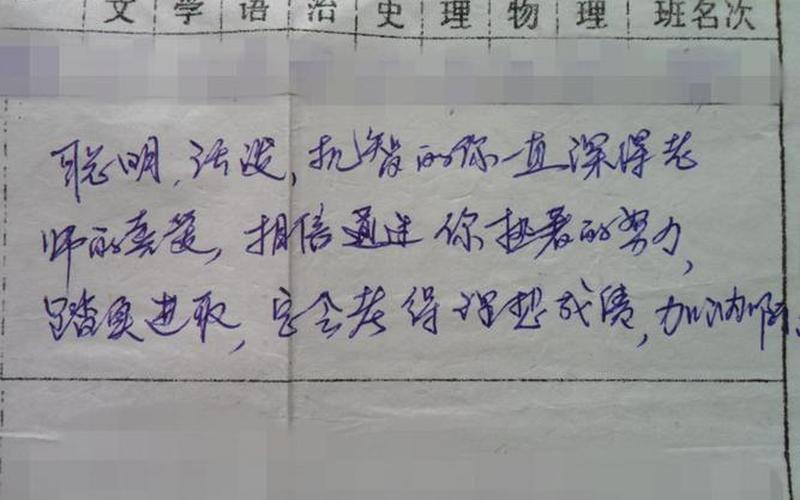 文 学 语 治 史 理 物 理 班名次
聪明,活泼,机智的你一直深得老
师的喜爱,相信通过你执着的努力,
踏实进取,定会考得理想成绩,加油啊